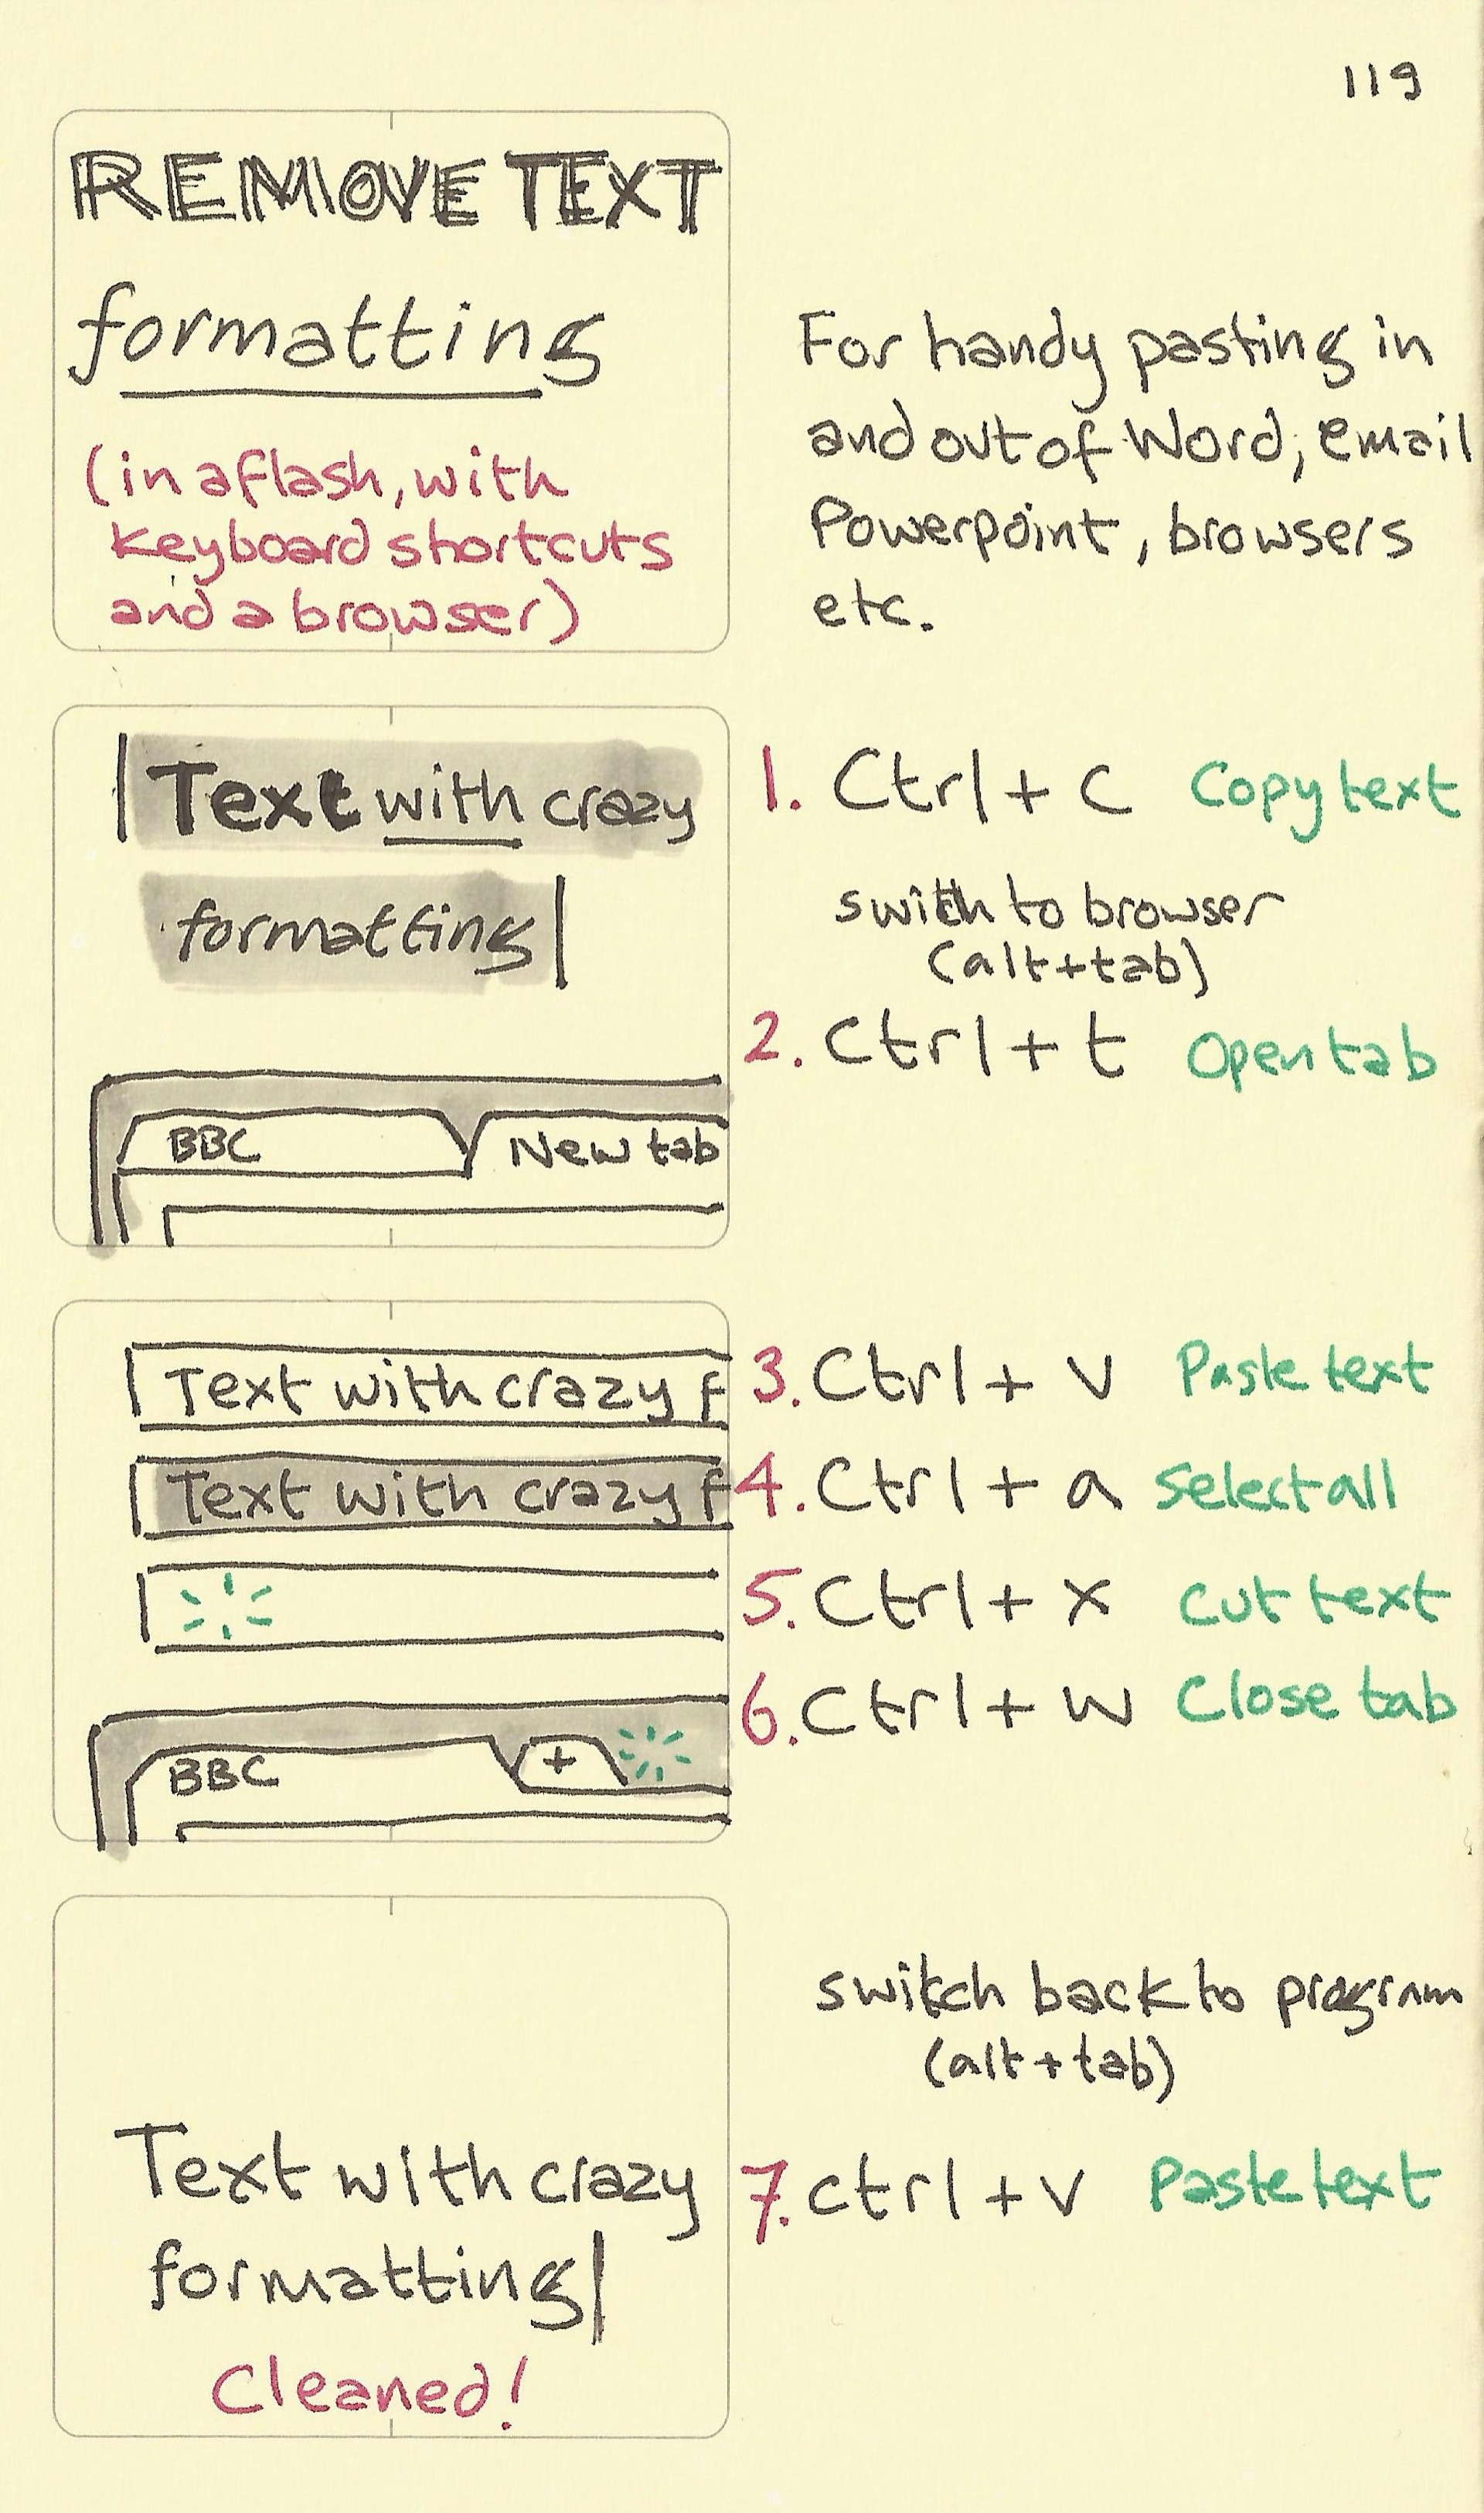 119
REMOVE TEXT
formatting
(in a flash, with
keyboard shortcuts
and a browser)
For handy pasting in
and out of Word, email
Powerpoint, browsers
etc.
Text with crazy
formatting
1. Ctrl + C Copy text
switch to browser
(alt+tab)
2. Ctrl + t Open tab
BBC New tab
Text with crazy f
3. Ctrl + v Paste text
Text with crazy f
4. Ctrl + a Select all
5. Ctrl + x cut text
6. Ctrl + w Close tab
BBC +
switch back to program
(alt + tab)
Text with crazy
formatting
7. Ctrl + v Paste text
Cleaned!